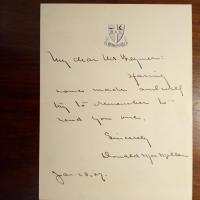 My dear Mr Heyner:
Having
some made and will
try to remember to
send you one.
Sincerely
Donald MacMillan
Jan 23, 27.